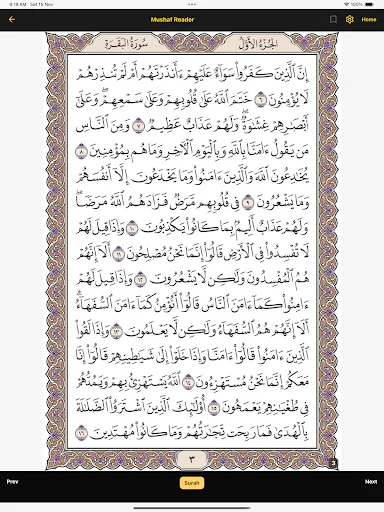 8:16 AM Sat 15 Nov
100%
Mushaf Reader
Home
سُورَةُ البَقَرَةِ
الجُزْءُ الأَوَّلُ
إِنَّ ٱلَّذِينَ كَفَرُوا۟ سَوَآءٌ عَلَيْهِمْ ءَأَنذَرْتَهُمْ أَمْ لَمْ تُنذِرْهُمْ
لَا يُؤْمِنُونَ ٦ خَتَمَ ٱللَّهُ عَلَىٰ قُلُوبِهِمْ وَعَلَىٰ سَمْعِهِمْ ۖ وَعَلَىٰٓ
أَبْصَٰرِهِمْ غِشَٰوَةٌ ۖ وَلَهُمْ عَذَابٌ عَظِيمٌ ٧ وَمِنَ ٱلنَّاسِ
مَن يَقُولُ ءَامَنَّا بِٱللَّهِ وَبِٱلْيَوْمِ ٱلْـَٔاخِرِ وَمَا هُم بِمُؤْمِنِينَ ٨
يُخَٰدِعُونَ ٱللَّهَ وَٱلَّذِينَ ءَامَنُوا۟ وَمَا يَخْدَعُونَ إِلَّآ أَنفُسَهُمْ
وَمَا يَشْعُرُونَ ٩ فِى قُلُوبِهِم مَّرَضٌ فَزَادَهُمُ ٱللَّهُ مَرَضًا ۖ
وَلَهُمْ عَذَابٌ أَلِيمٌۢ بِمَا كَانُوا۟ يَكْذِبُونَ ١٠ وَإِذَا قِيلَ لَهُمْ
لَا تُفْسِدُوا۟ فِى ٱلْأَرْضِ قَالُوٓا۟ إِنَّمَا نَحْنُ مُصْلِحُونَ ١١ أَلَآ إِنَّهُمْ
هُمُ ٱلْمُفْسِدُونَ وَلَٰكِن لَّا يَشْعُرُونَ ١٢ وَإِذَا قِيلَ لَهُمْ
ءَامِنُوا۟ كَمَآ ءَامَنَ ٱلنَّاسُ قَالُوٓا۟ أَنُؤْمِنُ كَمَآ ءَامَنَ ٱلسُّفَهَآءُ ۗ
أَلَآ إِنَّهُمْ هُمُ ٱلسُّفَهَآءُ وَلَٰكِن لَّا يَعْلَمُونَ ١٣ وَإِذَا لَقُوا۟
ٱلَّذِينَ ءَامَنُوا۟ قَالُوٓا۟ ءَامَنَّا وَإِذَا خَلَوْا۟ إِلَىٰ شَيَٰطِينِهِمْ قَالُوٓا۟ إِنَّا
مَعَكُمْ إِنَّمَا نَحْنُ مُسْتَهْزِءُونَ ١٤ ٱللَّهُ يَسْتَهْزِئُ بِهِمْ وَيَمُدُّهُمْ
فِى طُغْيَٰنِهِمْ يَعْمَهُونَ ١٥ أُو۟لَٰٓئِكَ ٱلَّذِينَ ٱشْتَرَوُا۟ ٱلضَّلَٰلَةَ
بِٱلْهُدَىٰ فَمَا رَبِحَت تِّجَٰرَتُهُمْ وَمَا كَانُوا۟ مُهْتَدِينَ ١٦
٣
3
Prev
Surah
Next